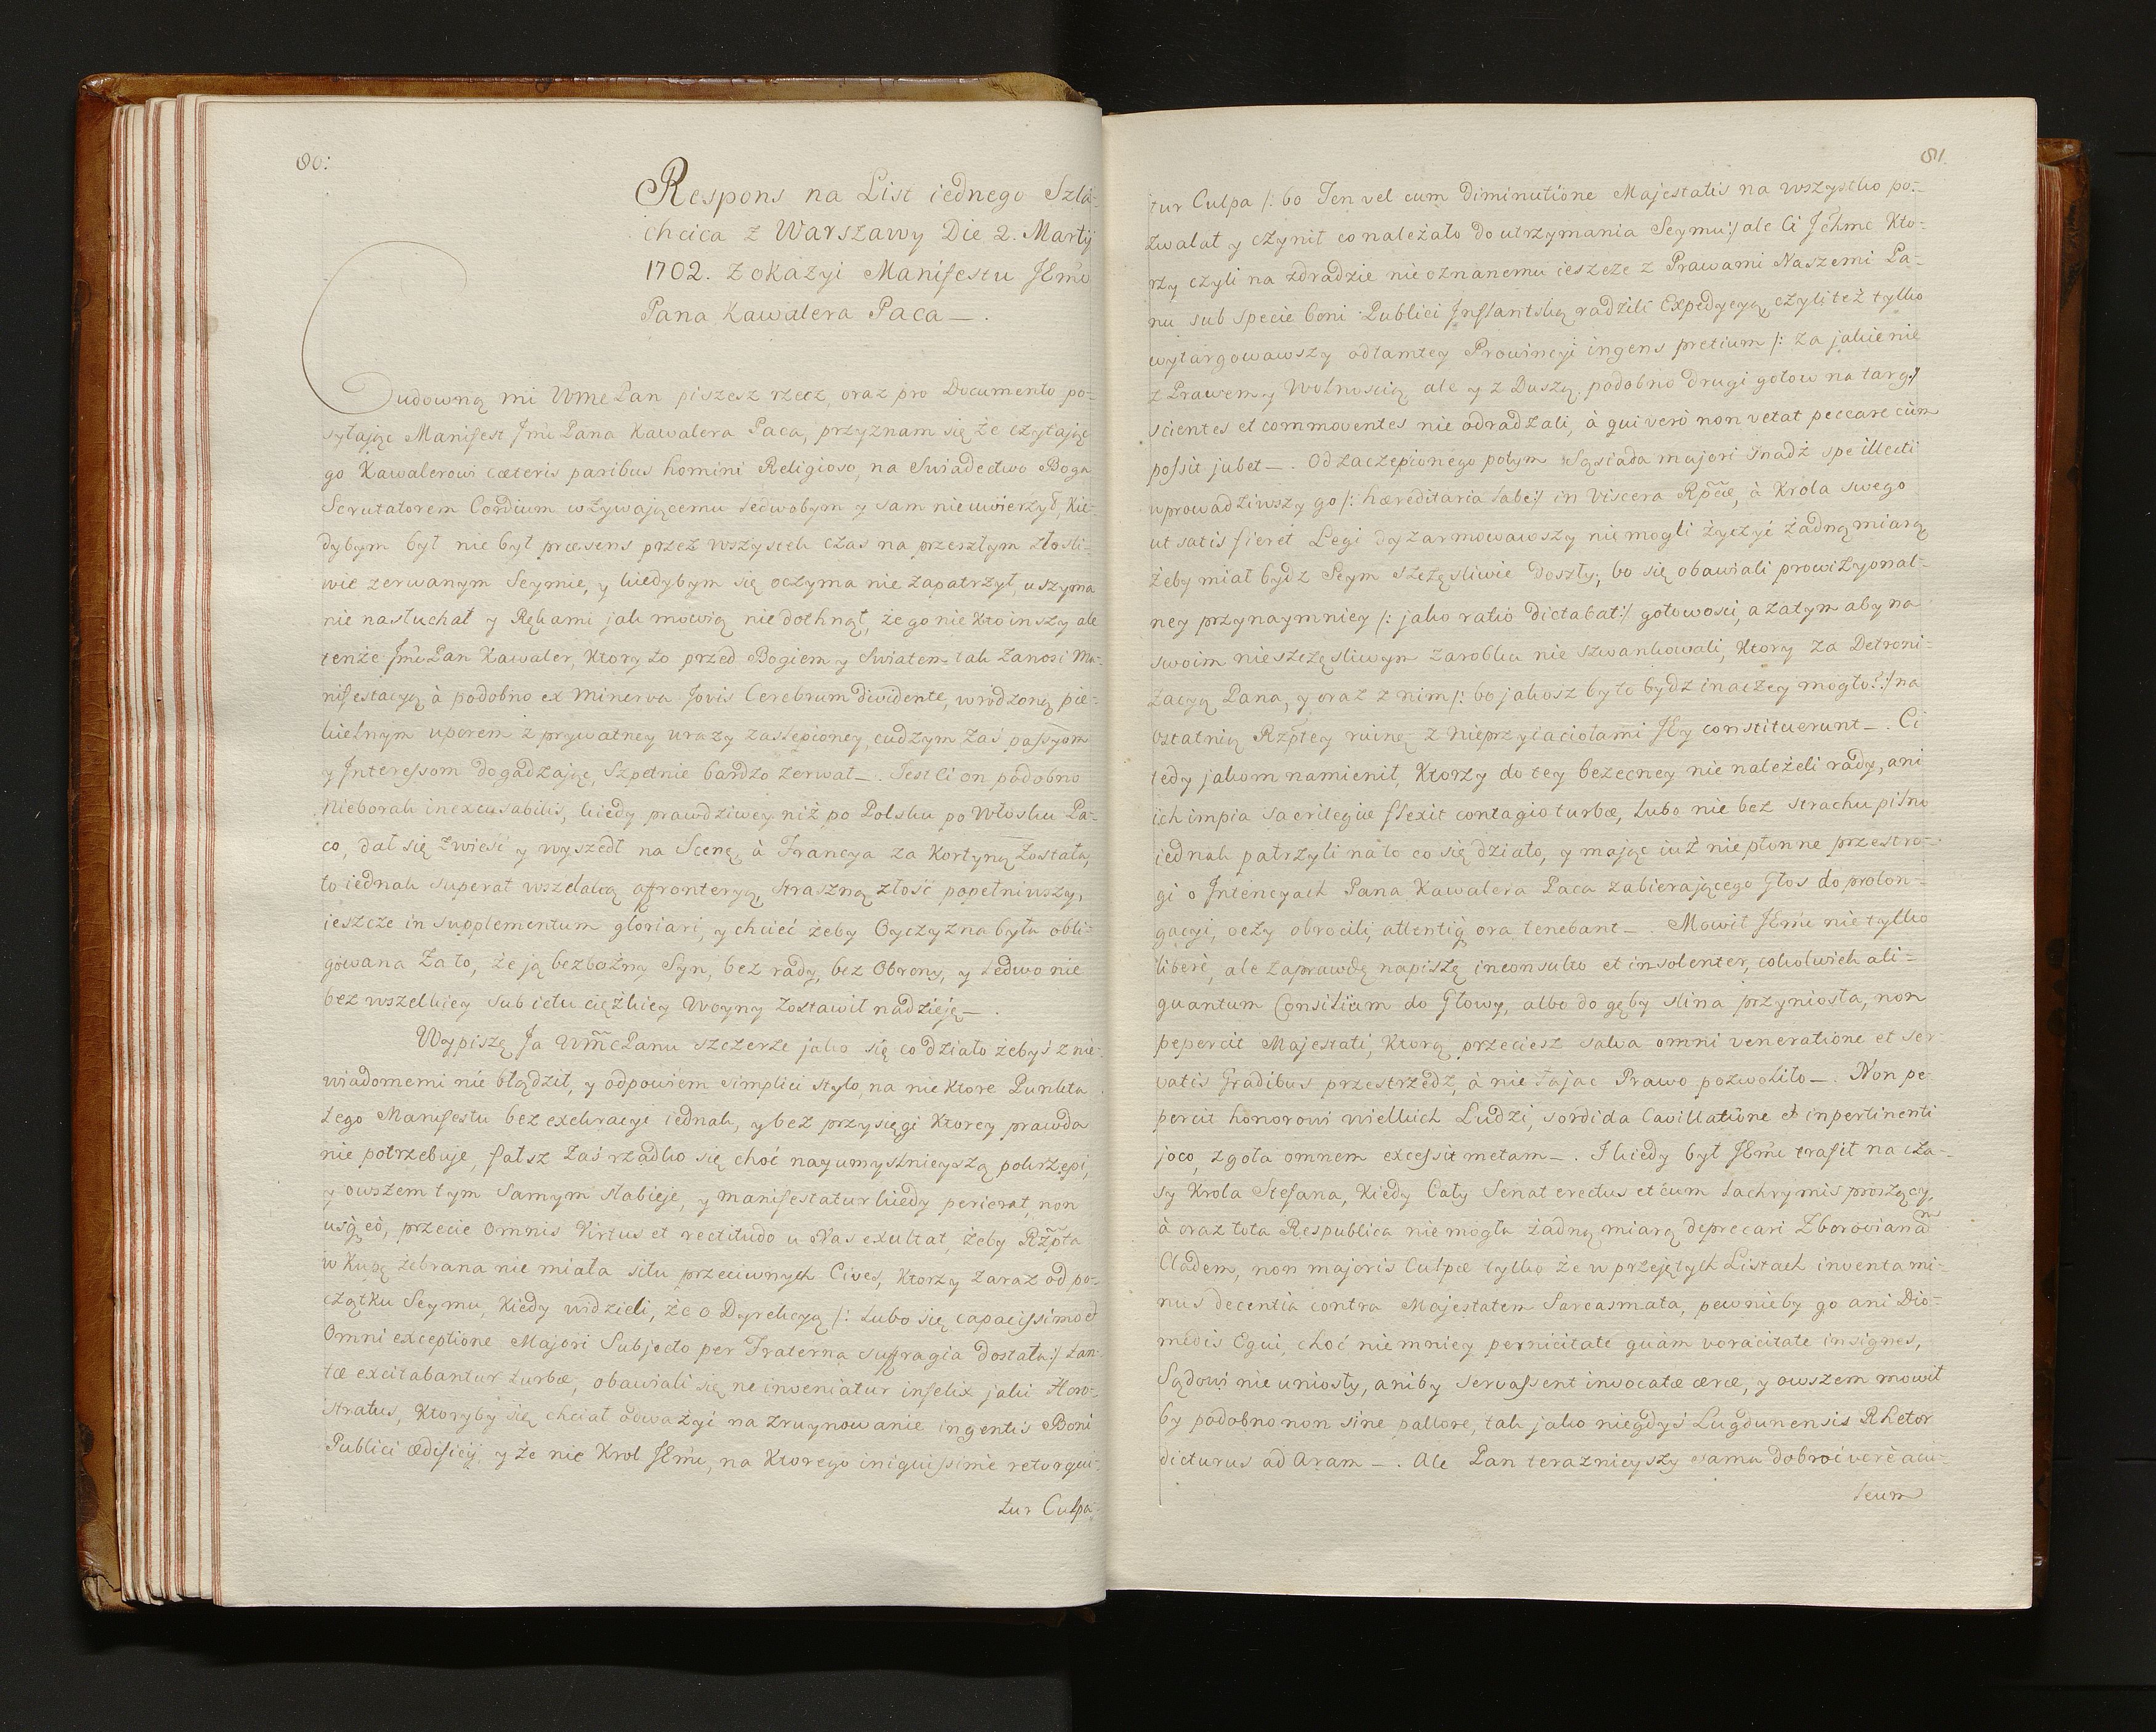 80:
Respons na List iednego Szla-
chcica z Warszawy Die 2. Martij
1702. z okazyi Manifestu JEmċi
Pana Kawalera Paca —.
Cudowną mi WmcPan piszesz rzecz, oraz pro Documento po-
syłaiąc Manifest Jmċi Pana Kawalera Paca, przyznam się że czytaiąc
go Kawalerowi cæteris paribus homini Religioso, na Swiadectwo Boga
Scrutatorem Cordium wzywaiącemu ledwobym y sam nie uwierzył, Kie-
dybym był nie był præsens przez wszystek czas na przeszłym złośli-
wie zerwanym Seymie, y kiedybym się oczyma nie zapatrzył, uszyma
nie nasłuchał y Rękami iak mowią nie dotknął, że go nie kto inszy ale
tenże Jmċi Pan Kawaler, Ktory to przed Bogiem y Swiatem tak zanosi Ma-
nifestacyą à podobno ex Minerva Jovis Cerebrum dividente, wrodzoną pie-
kielnym uporem z prywatney urazy zaslepioney, cudzym zaś passyom
y Interessom dogadzaiąc, szpetnie bardzo zerwał —. Jest li on podobno
Nieborak inexcusabilis, kiedy prawdziwey niż po Polsku po Włosku Pa-
co, dał się zwieść y wyszedł na Scenę, à Francya za Kortyną została,
to iednak superat wszelaką affronteryą, straszną złość popełniwszy,
ieszcze in supplementum gloriari, y chcieć żeby Oyczyzna była obli-
gowana za to, że ią bezbożny Syn, bez rady, bez Obrony, y ledwo nie
bez wszelkiey sub ictu ciężkiey Woyny zostawił nadzieię —.
Wypiszę Ja WmċPanu szczerze iako się co działo żebyś z nie-
wiadomemi nie błądził, y odpowiem simplici stylo, na nie ktore Punkta
tego Manifestu bez exekracyi iednak, y bez przysięgi Ktorey prawda
nie potrzebuje, fałsz zaś rzadko się choć nayumyślnieyszą pokrzepi,
y owszem tym samym słabieje, y manifestatur kiedy perierat, non
usq; eò, przecie omnis Virtus et rectitudo u Nas exultat, żeby Rzpta
w Kupę zebrana nie miała situ przeciwnych Cives, Ktorzy zaraz od po-
czątku Seymu, Kiedy widzieli, że o Dyrekcyą /: lubo się capacissimo et
Omni exceptione Majori Subjecto per Fraterna suffragia dostała :/ tan-
tæ excitabantur turbæ, obawiali się ne inveniatur infelix jaki Hero-
stratus, Ktoryby się chciał odważyć na zruynowanie ingentis Boni
Publici ædificij, y że nie Krol JEmċ, na Ktorego iniquissimè retorqui-
tur Culpa
81.
tur Culpa /: bo Ten vel cum diminutione Majestatis na wszystko po-
zwalał y czynił co należało do utrzymania Seymu :/ ale Ci Jchmċ Kto-
rzy czyli na zdradzie nieoznanemu ieszcze z Prawami Naszemi Pa-
nu sub specie boni Publici Inflantską radzili Expedycyą, czyli też tylko
wytargowawszy od tamtey Prowincyi ingens pretium /: za jakie nie
z Prawem y Wolnością, ale y z Duszą podobno drugi gotow na targ :/
scientes et commoventes nie odradzali, à qui verò non vetat peccare cùm
possit jubet —. Od zaczepionego potym Sąsiada majori snadź spe illecti
wprowadziwszy go /: hæreditaria labe :/ in Viscera Rpcæ, à Krola swego
ut satis fieret Legi dyzarmowawszy nie mogli życzyć żadną miarą
żeby miał bydz Seym szczęśliwie doszły, bo się obawiali prowizyonal-
ney przynaymniey /: jako ratio dictabat :/ gotowosci, a zatym aby na
swoim nieszczęsliwym zarobku nie szwankowali, Ktory za Detroni-
zacyą Pana, y oraz z nim /: bo jakosz było bydz inaczey mogło? :/ na
ostatnią Rzptey ruinę z Nieprzyiaciołami JEy constituerunt —. Ci
tedy jakom namienił, Ktorzy do tey bezecney nie należeli rady, ani
ich impia sacrilegiæ flexit contagio turbæ, lubo nie bez strachu pilno
iednak patrzyli na to co się działo, y maiąc iuż niepłonne przestro-
gi o Intencyach Pana Kawalera Paca zabieraiącego Głos do prolon-
gacyi, oczy obrocili, attentiq; ora tenebant —. Mowił JEmċ nie tylko
liberè, ale zaprawdę napiszę inconsulto et insolenter, cokolwiek ali-
quantum Consilium do Głowy, albo do gęby slina przyniosła, non
pepercit Majestati, Ktorą przeciesz salva omni veneratione et ser-
vatis Gradibus przestrzedz, à nie łajac Prawo pozwoliło —. Non pe-
percit honorowi wielkich Ludzi, sordida Cavillatione et inpertinenti
joco, zgoła omnem excessit metam —. I kiedy był JEmċ trafił na cza-
sy Krola Stefana, Kiedy Cały Senat erectus et cum lachrymis proszący,
à oraz tota Respublica nie mogła żadną miarą deprecari Zborovianam
Cladem, non majoris Culpæ tylko że w przejętych Listach inventa mi-
nus decentia contra Majestatem Sarcasmata, pewnieby go ani Dio-
medis Equi, choć nie mniey pernicitate quàm voracitate insignes,
Sądowi nie uniosły, aniby servassent invocatæ aræ, y owszem mowił
by podobno non sine pallore, tak jako niegdyś Lugdunensis Rhetor
dicturus ad Aram —. Ale Pan terazniejszy sama dobroć verè acu-
leum